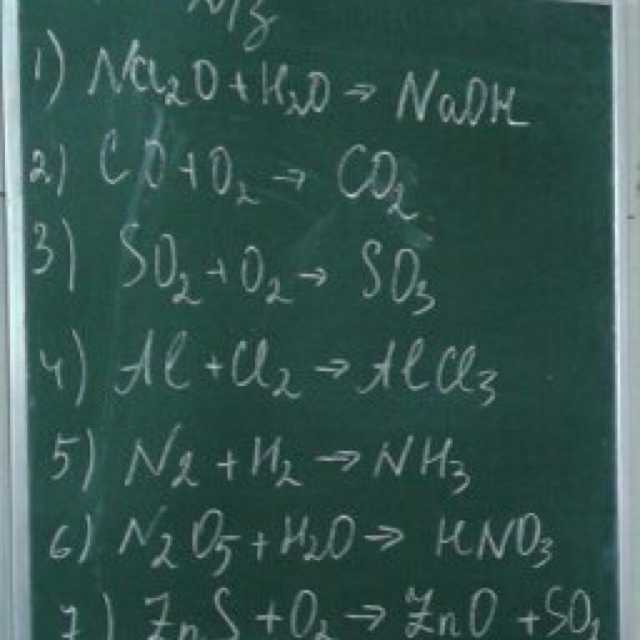 1) Na₂O + H₂O → NaOH
2) CO + O₂ → CO₂
3) SO₂ + O₂ → SO₃
4) Al + Cl₂ → AlCl₃
5) N₂ + H₂ → NH₃
6) N₂O₅ + H₂O → HNO₃
7) ZnS + O₂ → ZnO + SO₂